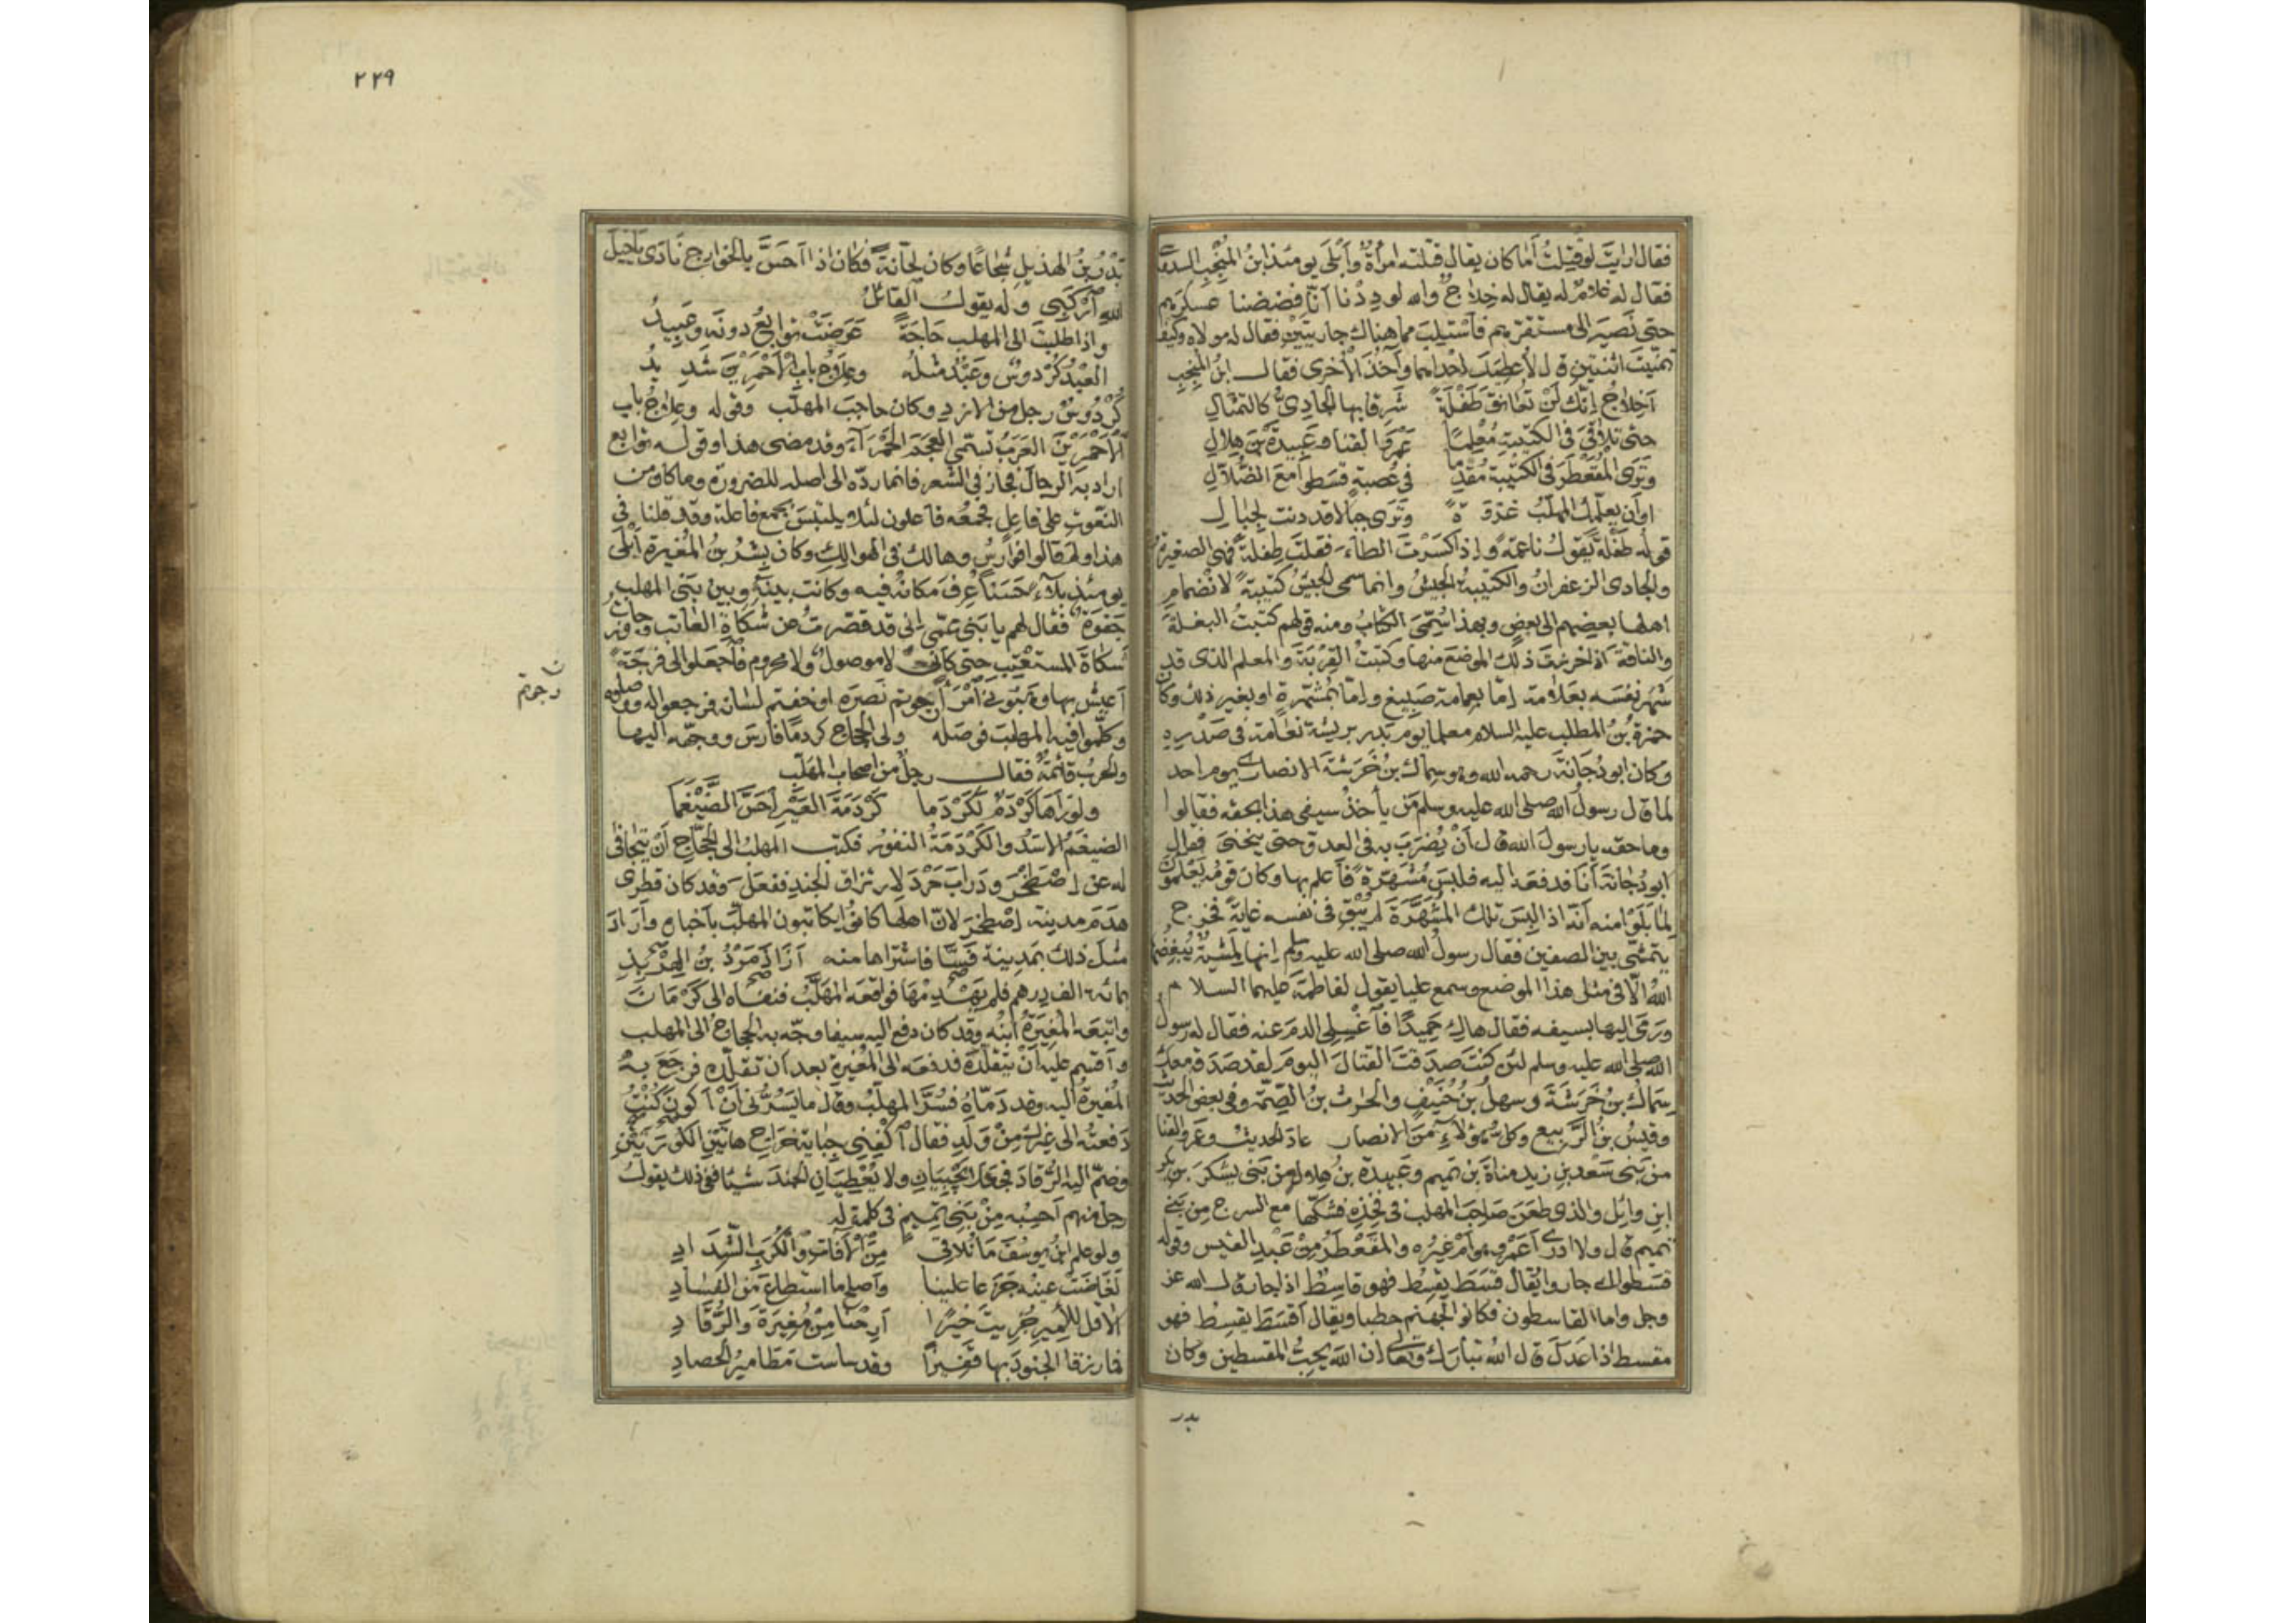 فقال ارايت لو قتلت أما كان يقال قتلته امرأة وأبلى يومئذ ابن المنجب السدوسي
فقال له غلام له يقال له خلاج والله لوددنا أنا فضضنا عسكرهم
حتى نصير الى مستقرهم فأستلب مما هناك جاريتين فقال له مولاه وكيف
تمنيت اثنتين قال لأعطيك احداهما وآخذ الأخرى فقال ابن المنجب
أخلاج إنك لن تعانق طفلة شرقا بها الجادي كالتمثال
حتى تلاقي في الكتيبة معلما عمرو القنا وعبيدة بن هلال
وترى المقعطر في الكتيبة مقدما في عصبة قسطوا مع الضلال
او أن يعلمك المهلب غزوة وترى جبالا قد دنت لجبال
قوله طفلة يقول ناعمة وإذا كسرت الطاء فقلت طفلة فهي الصغيرة
والجادى الزعفران والكتيبة الجيش وانما سمى الجيش كتيبة لانضمام
اهلها بعضهم الى بعض وبهذا سمي الكتاب ومنه قولهم كتبت البغلة
والناقة اذا خرزت ذلك الموضع منها وكتبت القربة والمعلم الذى قد
شهر نفسه بعلامة إما بعمامة صبيغ وإما بمشهرة او بغير ذلك وكان
حمزة بن المطلب عليه السلام معلما يوم بدر بريشة نعامة في صدره
وكان ابو دجانة رحمه الله وهو سماك بن خرشة الانصارى يوم احد
لما قال رسول الله صلى الله عليه وسلم من يأخذ سيفى هذا بحقه فقالوا
وما حقه يا رسول الله قال أن يضرب به في العدو حتى ينحنى فقال
ابو دجانة أنا فدفعه اليه فلبس مشهرة فأعلم بها وكان قومه يعلمون
لما بلوا منه أنه اذا لبس تلك المشهرة لم يبق في نفسه غاية فخرج
يتمشى بين الصفين فقال رسول الله صلى الله عليه وسلم إنها لمشية يبغضها
الله الا في مثل هذا الموضع وسمع عليا يقول لفاطمة عليهما السلام
ورمى اليها بسيفه فقال هاك حميدا فأغسلي الدم عنه فقال له رسول
الله صلى الله عليه وسلم لئن كنت صدقت القتال اليوم لقد صدقه معك
سماك بن خرشة وسهل بن حنيف والحرث بن الصمة وفي بعض الحديث
وقيس بن الربيع وكل هؤلاء من الانصار عاد الحديث وعمرو القنا
من بنى سعد بن زيد مناة بن تميم وعبيدة بن هلال من بنى يشكر بن بكر
ابن وائل والذى طعن صاحب المهلب في فخذه فشكها مع السرج من بني
تميم قال ولا ادري أعمرو هو أم غيره والمقعطر من عبد القيس وقوله
قسطوا اى جاروا يقال قسط يقسط فهو قاسط اذا جار قال الله عز
وجل واما القاسطون فكانوا لجهنم حطبا ويقال أقسط يقسط فهو
مقسط اذا عدل قال الله تبارك وتعالى إن الله يحب المقسطين وكان
بدر
٢٢٩
بدر بن الهذيل شجاعا وكان لحانة فكان اذا أحس بالخوارج نادى ياخيل
الله أركبي وله يقول القائل
واذا طلبت الى المهلب حاجة عرضت توابع دونه وعبيد
العبد كردوس وعبد مثله وعلاج باب الأحمرين شديد
كردوس رجل من الازد وكان حاجب المهلب وقوله وعلاج باب
الأحمرين العرب تسمي العجم الحمراء وقد مضى هذا وقوله توابع
اراد به الرجال فجاز في الشعر فانما رده الى اصله للضرورة وما كان من
النعوت على فاعل فجمعه فاعلون لئلا يلتبس بجمع فاعلة وقد قلنا في
هذا ولم قالوا فوارس وهالك في الهوالك وكان بشر بن المغيرة أبلى
يومئذ بلاء حسنا عرف مكانه فيه وكانت بينه وبين بنى المهلب
جفوة فقال لهم يا بنى عمي إنى قد قصرت عن شكاة العاتب وجاوزت
شكاة المستعتب حتى كأنى لا موصول ولا محروم فأجعلوا لى فرجة
أعيش بها وهبوني أمرأ رجوتم نصره او خفتم لسانه فرجعوا له ووصلوه
ن
رجوتم
وكلموا فيه المهلب فوصله وولى الحجاج كردما فارس ووجهه اليها
والحرب قائمة فقال رجل من اصحاب المهلب
ولو رآها كردم لكردما كردمة العير أحس الضيغما
الضيغم الاسد والكردمة النفور فكتب المهلب الى الحجاج أن يتجافى
له عن إصطخر ودرابجرد لارتزاق الجند ففعل وقد كان قطرى
هدم مدينة إصطخر لان اهلها كانوا يكاتبون المهلب بأخباره وأراد
مثل ذلك بمدينة فسا فاشتراها منه آزاذمرد بن الهربذ
بمائة الف درهم فلم يهدمها فواقعه المهلب فنفاه الى كرمان
واتبعه المغيرة ابنه وقد كان دفع اليه سيفا وجه به الحجاج الى المهلب
وأقسم عليه أن يتقلده فدفعه الى المغيرة بعد أن تقلده فرجع به
المغيرة اليه وقد دماه فسر المهلب وقال ما يسرنى أن أكون كنت
دفعته الى غيرك من ولدى فقال أكفني جباية خراج هاتين الكورتين
وضم اليه الرقاد فجعلا يجبيان ولا يعطيان الجند شيئا ففى ذلك يقول
رجل منهم أحسبه من بنى تميم في كلمة له
ولو علم ابن يوسف ما نلاقي من الآفات والكرب الشداد
لفاضت عينه جزعا علينا وأصلح ما استطاع من الفساد
الا قل للأمير جزيت خيرا أرحنا من مغيرة والرقاد
فما رزقا الجنود بها قفيزا وقد ساست مطامير الحصاد